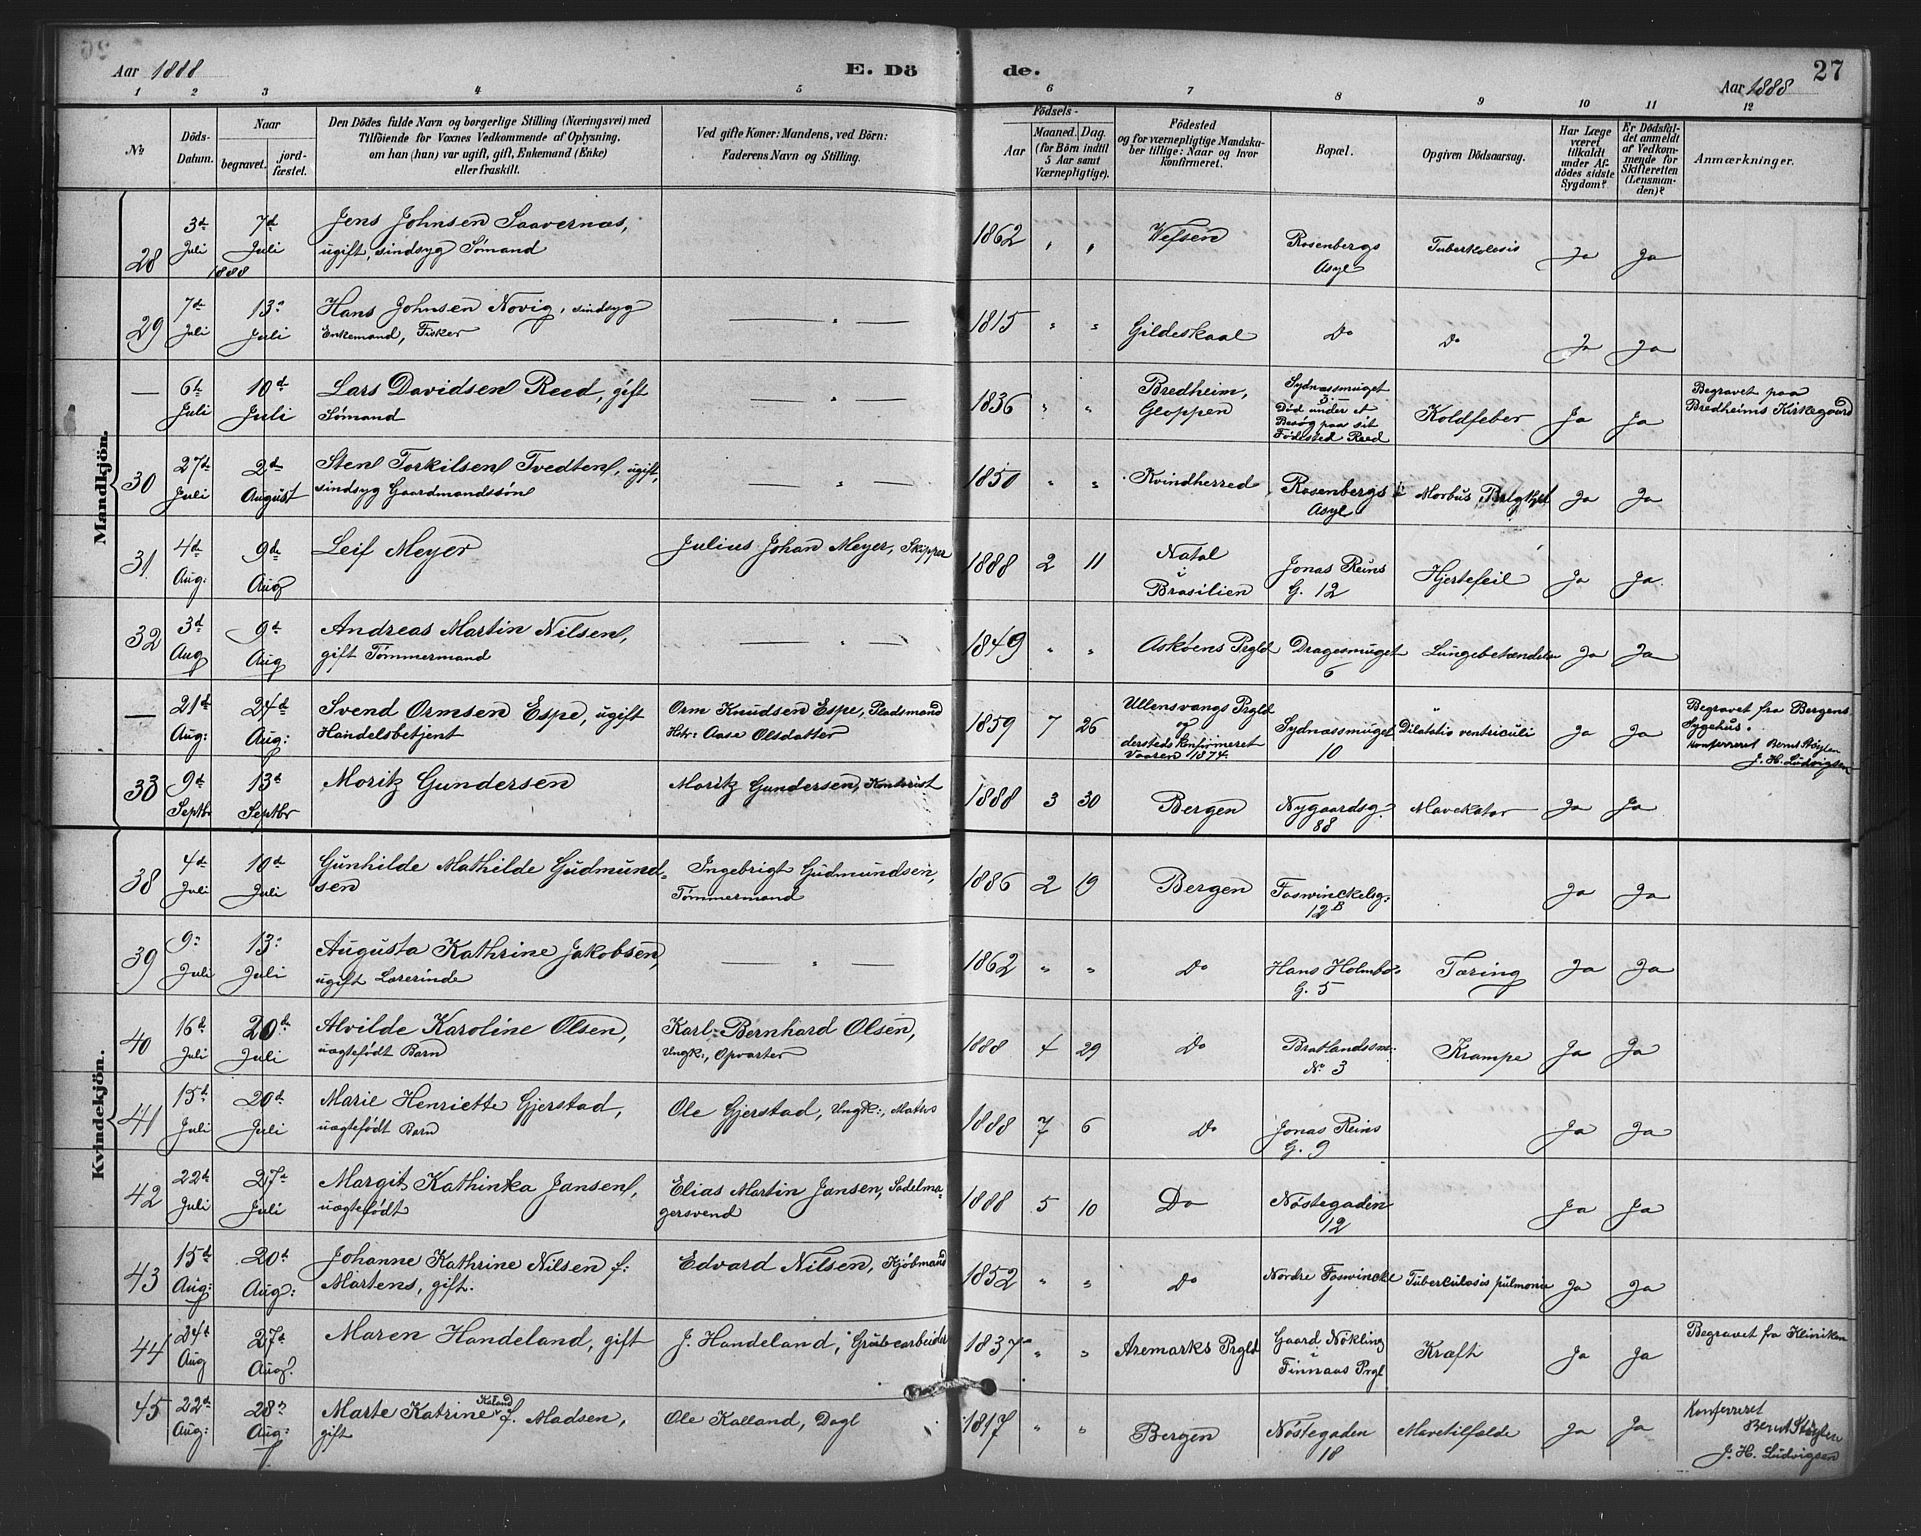 Aar 1888
E. Dö
de.
Aar 1888
27
1 2 3 4 5 6 7 8 9 10 11 12
No
Döds-Datum.
Naar
begravet.
jordfæstet.
Den Dödes fulde Navn og borgerlige Stilling (Næringsvei) med
Tilföiende for Voxnes Vedkommende af Oplysning,
om han (hun) var ugift, gift, Enkemand (Enke)
eller fraskilt.
Ved gifte Koner: Mandens, ved Börn:
Faderens Navn og Stilling.
Födsels-
Aar
Maaned. Dag.
(for Börn indtil
5 Aar samt
Værnepligtige).
Födested
og for værnepligtige Mandskaber tillige: Naar og hvor
konfirmeret.
Bopæl.
Opgiven Dödsaarsag.
Har Læge
været
tilkaldt
under Afdödes sidste
Sygdom?
Er Dödsfaldet anmeldt
af Vedkommende for
Skifteretten
(Lensmanden)?
Anmærkninger.
Mandkjön.
28 3d Juli 1888 7d Juli Jens Johnsen Saavernæs, 1862 " " Vefsen Rosenbergs Asyl Tuberkolosis Ja Ja
ugift, sindsyg Sømand
29 7d Juli 13d Juli Hans Johnsen Novig, sindsyg — " — 1815 " " Gildeskaal Do Do Ja Ja
Enkemand, Fisker
— 6te Juli 10d Juli Lars Davidsen Reed, gift — " — 1836 " " Bredheim, Gloppen Sydnæssmuget 3. — Død under et Besøg paa sit Fødested Reed Koldfeber Ja Ja Begravet paa Bredheims Kirkegaard
Sømand
30 27d Juli 2d August Sten Torkilsen Tvedten, ugift, — " — 1850 " " Kvindherred Rosenbergs Asyl Morbus Ja Ja
sindsyg Gaardmandssøn
31 4d Aug: 9d Aug Leif Meyer Julius Johan Meyer, Skipper 1888 2 11 Natal i Brasilien Jonas Reins G. 12 Hjertefeil Ja Ja
32 3d Aug 9d Aug Andreas Martin Nilsen, — " — 1849 " " Askøens Prgld Dragesmuget 6 Lungebetændelse Ja Ja
gift Tømmermand
— 21d Aug: 24d Aug: Svend Ormsen Espe, ugift Orm Knudsen Espe, Pladsmand 1859 7 26 Ullensvangs Prgld og dersteds konfirmeret Vaaren 1874. Sydnæssmuget 10 Dilatatio ventriculi Ja Ja Begravet fra Bergens Sygehus.
Handelsbetjent Hstr: Aase Olsdatter Konferreret Bernt Støylen
J. H. Ludvigsen
33 9d Septbr 13d Septbr Moritz Gundersen Moritz Gundersen, Kontorist 1888 3 30 Bergen Nygaardsg. 88 Mavekatar Ja Ja
Kvindekjön.
38 4d Juli 10d Juli Gunhilde Mathilde Gudmundsen Ingebrigt Gudmundsen, Tømmermand 1886 2 19 Bergen Foswinckelsg: 12 B Ja Ja
39 9d Juli 13d Juli Augusta Kathrine Jakobsen, — " — 1862 " " Do Hans Holmbo's G. 5 Tæring Ja Ja
ugift Lærerinde
40 16d Juli 20d Juli Alvilde Karoline Olsen, Karl Bernhard Olsen, 1888 4 29 Do Bratlandssm: No 3 Krampe Ja Ja
uægtefødt Barn Ungk:, Opvarter
41 15d Juli 20d Juli Marie Henriette Gjerstad, Ole Gjerstad, Ungk:, Matros 1888 7 6 Do Jonas Reins G. 9 Ja Ja
uægtefødt Barn
42 22d Juli 27d Juli Margit Kathinka Jansen, Elias Martin Jansen, Sadelmagersvend 1888 5 10 Do Nøstegaden 12 Ja Ja
uægtefødt
43 15d Aug: 20d Aug: Johanne Kathrine Nilsen f: Edvard Nilsen, Kjøbmand 1852 " " Do Nordre Foswinckl 1 Tuberculosis pulmonum Ja Ja
Martens, gift.
44 24d Aug 27d Aug. Maren Handeland, gift J. Handeland, Grubearbeider 1837 " " Aremarks Prgld Gaard Nøkling i Finnaas Prgl Kræft Ja Ja Begravet fra Kliniken
45 22d Aug: 28d Aug: Marte Katrine Kaland f. Madsen, Ole Kalland, Dagl 1817 " " Bergen Nøstegaden 18 Mavetilfælde Ja Ja Konferreret
gift Bernt Støylen
J. H. Ludvigsen